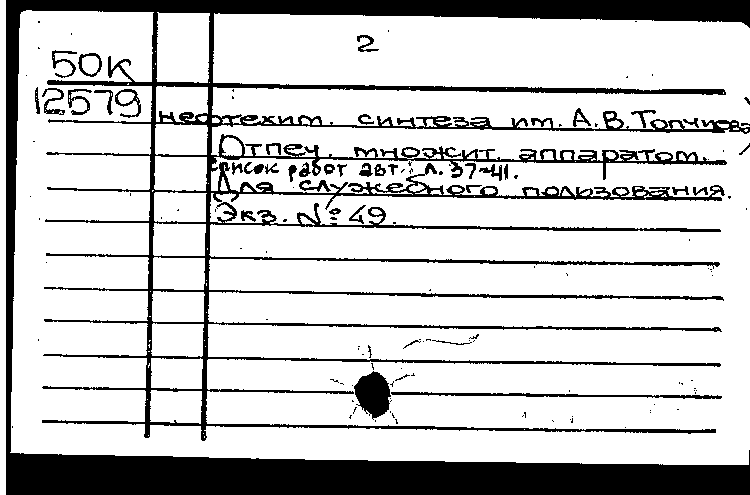 2
50К
12579
нефтехим. синтеза им. А.В. Топчиева)
Отпеч. множит. аппаратом.
Список работ авт.: л. 37-41.
Для служебного пользования.
Экз. № 49.